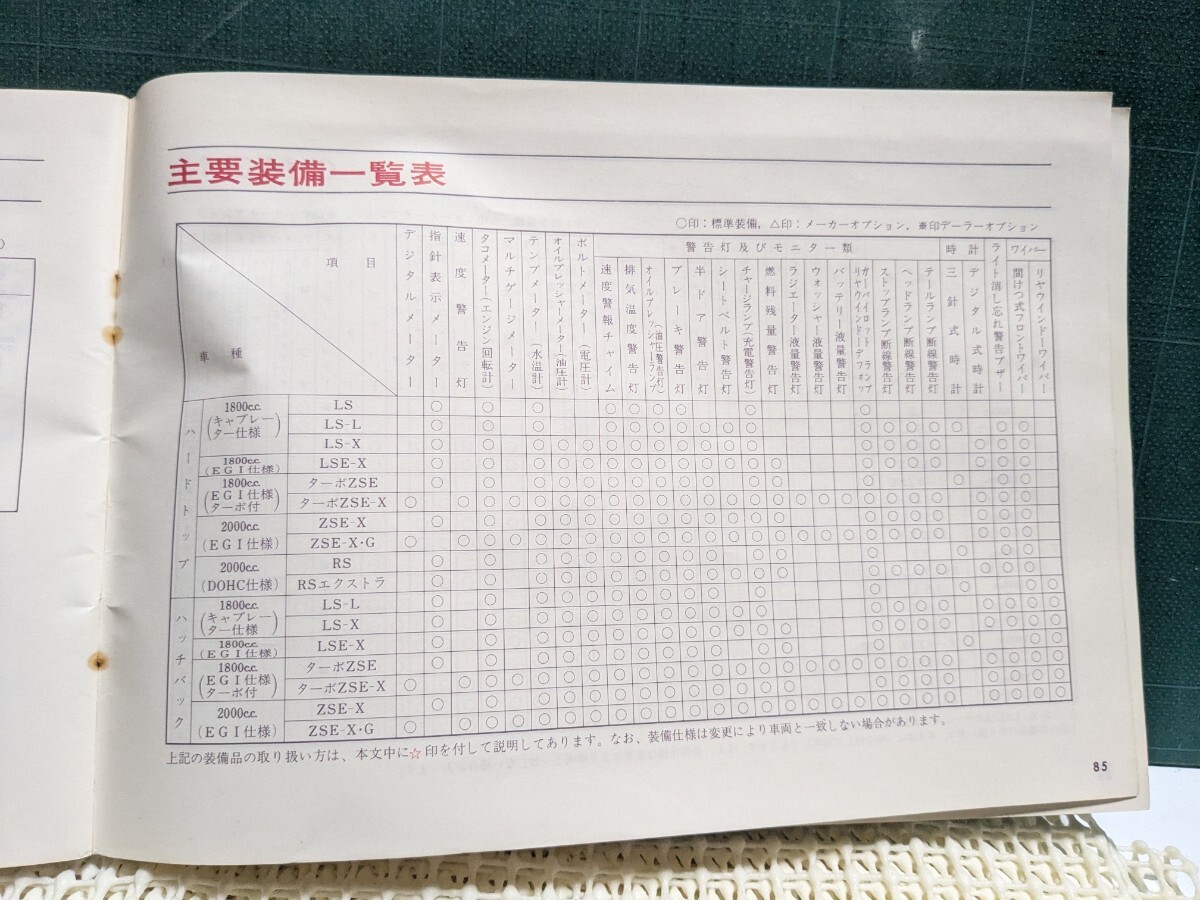 主要装備一覧表
○印：標準装備，△印：メーカーオプション，※印デーラーオプション
項目
車種
デジタルメーター
指針表示メーター
速度警告灯
タコメーター(エンジン回転計)
マルチゲージメーター
テンプメーター(水温計)
オイルプレッシャーメーター(油圧計)
ボルトメーター(電圧計)
警告灯及びモニター類
速度警報チャイム
排気温度警告灯
オイルプレッシャーランプ(油圧警告灯)
ブレーキ警告灯
半ドア警告灯
シートベルト警告灯
チャージランプ(充電警告灯)
燃料残量警告灯
ラジエター液量警告灯
ウォッシャー液量警告灯
バッテリー液量警告灯
ガーパイロットランプ
リヤウインドーデフォッ
ストップランプ断線警告灯
ヘッドランプ断線警告灯
テールランプ断線警告灯
時計
三針式時計
デジタル式時計
ライト消し忘れ警告ブザー
ワイパー
間けつ式フロントワイパー
リヤウインドーワイパー
ハードトップ
1800c.c. (キャブレーター仕様)
LS
LS-L
LS-X
1800c.c. (EGI仕様)
LSE-X
1800c.c. (EGI仕様 ターボ付)
ターボZSE
ターボZSE-X
2000c.c. (EGI仕様)
ZSE-X
ZSE-X・G
2000c.c. (DOHC仕様)
RS
RSエクストラ
ハッチバック
1800c.c. (キャブレーター仕様)
LS-L
LS-X
1800c.c. (EGI仕様)
LSE-X
1800c.c. (EGI仕様 ターボ付)
ターボZSE
ターボZSE-X
2000c.c. (EGI仕様)
ZSE-X
ZSE-X・G
上記の装備品の取り扱い方は、本文中に☆印を付して説明してあります。なお、装備仕様は変更により車両と一致しない場合があります。
85